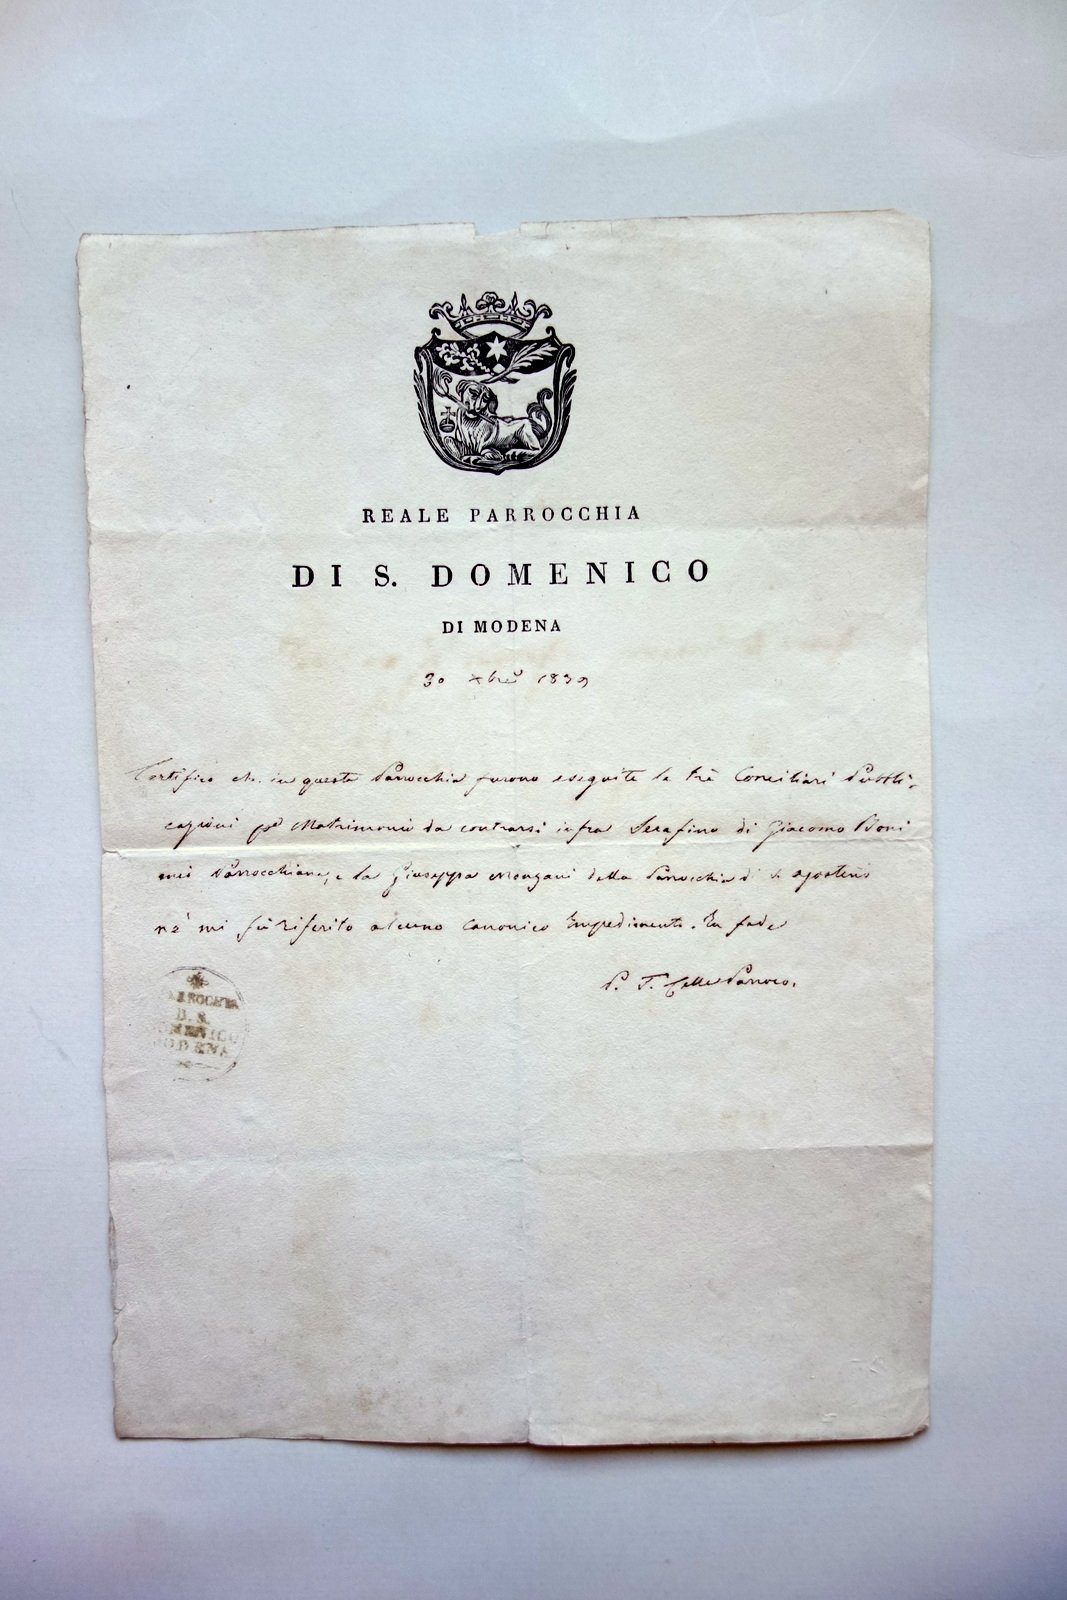 REALE PARROCCHIA
DI S. DOMENICO
DI MODENA
30 Xbre 1839
Certifico che in questa Parrocchia furono eseguite le trè Conciliari Pubbli-
cazioni pel Matrimonio da contrarsi infra Serafino di Giacomo Boni
mio Parrocchiano, e la Giuseppa Mongani della Parrocchia di S. Agostino
nè mi fù riferito alcuno canonico Impedimento. In fede
P. T. Parroco.
PARROCHIA
D. S.
DOMENICO
MODENA